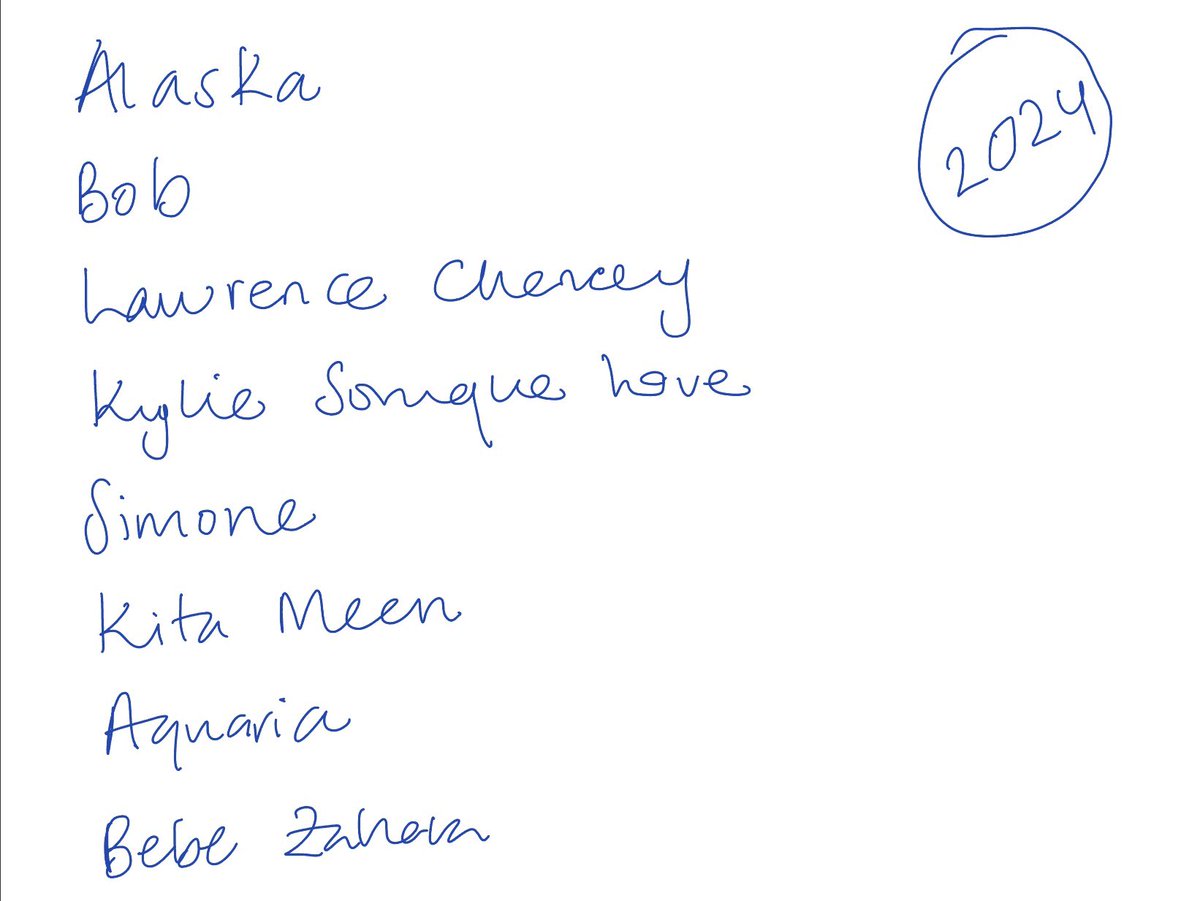 Alaska
2024
Bob
Lawrence Chencey
Kylie Sonique Love
Simone
Kita Meen
Aquaria
Bebe Zahara